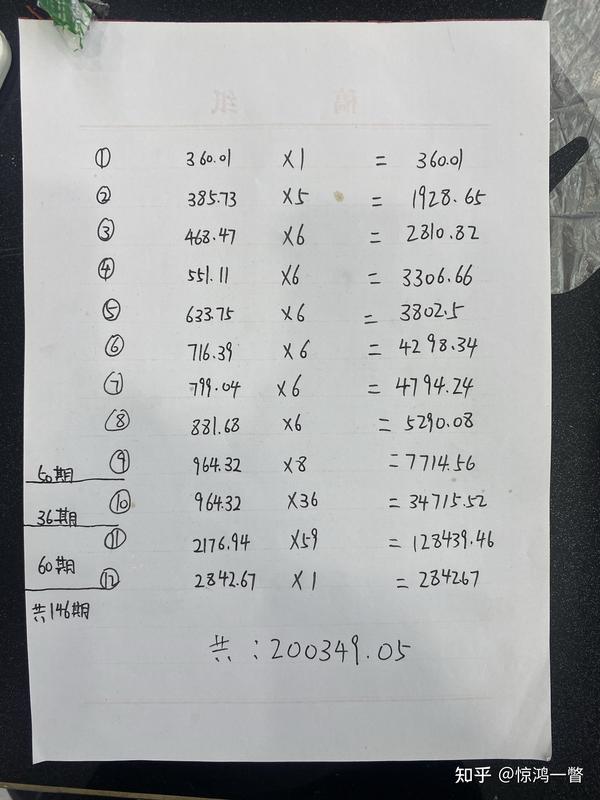 稿 纸
① 360.01 ×1 = 360.01
② 385.73 ×5 = 1928.65
③ 468.47 ×6 = 2810.82
④ 551.11 ×6 = 3306.66
⑤ 633.75 ×6 = 3802.5
⑥ 716.39 ×6 = 4298.34
⑦ 799.04 ×6 = 4794.24
⑧ 881.68 ×6 = 5290.08
⑨ 964.32 ×8 = 7714.56
50期
⑩ 964.32 ×36 = 34715.52
36期
⑪ 2176.94 ×59 = 128439.46
60期
⑫ 2842.67 ×1 = 2842.67
共146期
共：200349.05
知乎 @惊鸿一瞥